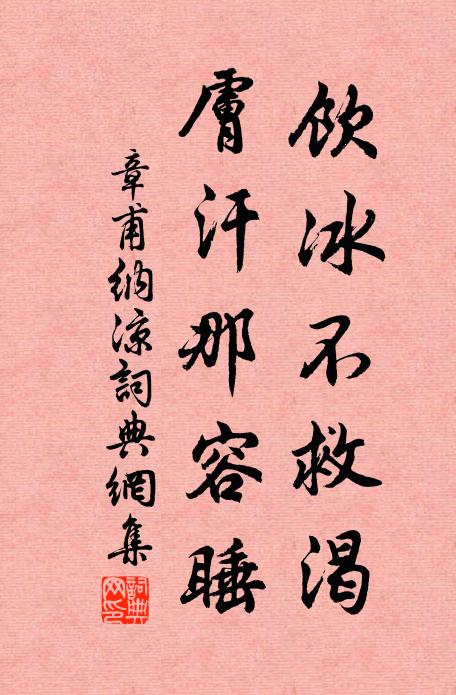 飲冰不救渴
膚汗那容睡
章甫納涼詞典網集
詞典網印